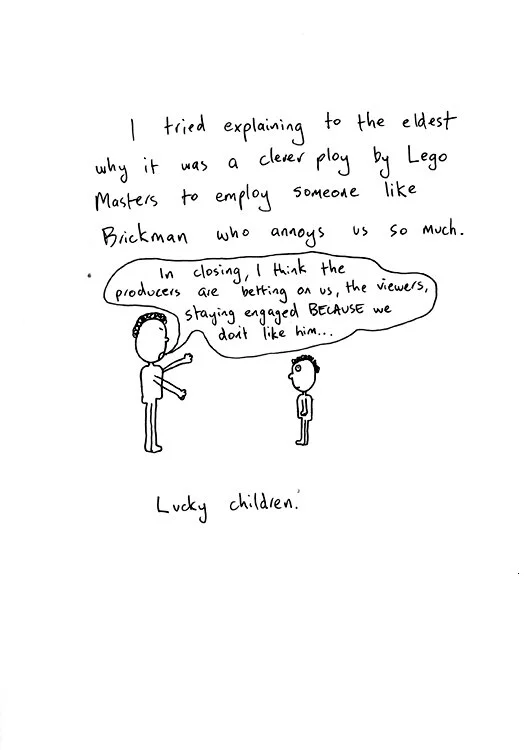 I tried explaining to the eldest
why it was a clever ploy by Lego
Masters to employ someone like
Brickman who annoys us so much.
In closing, I think the
producers are betting on us, the viewers,
staying engaged BECAUSE we
don't like him...
Lucky children.